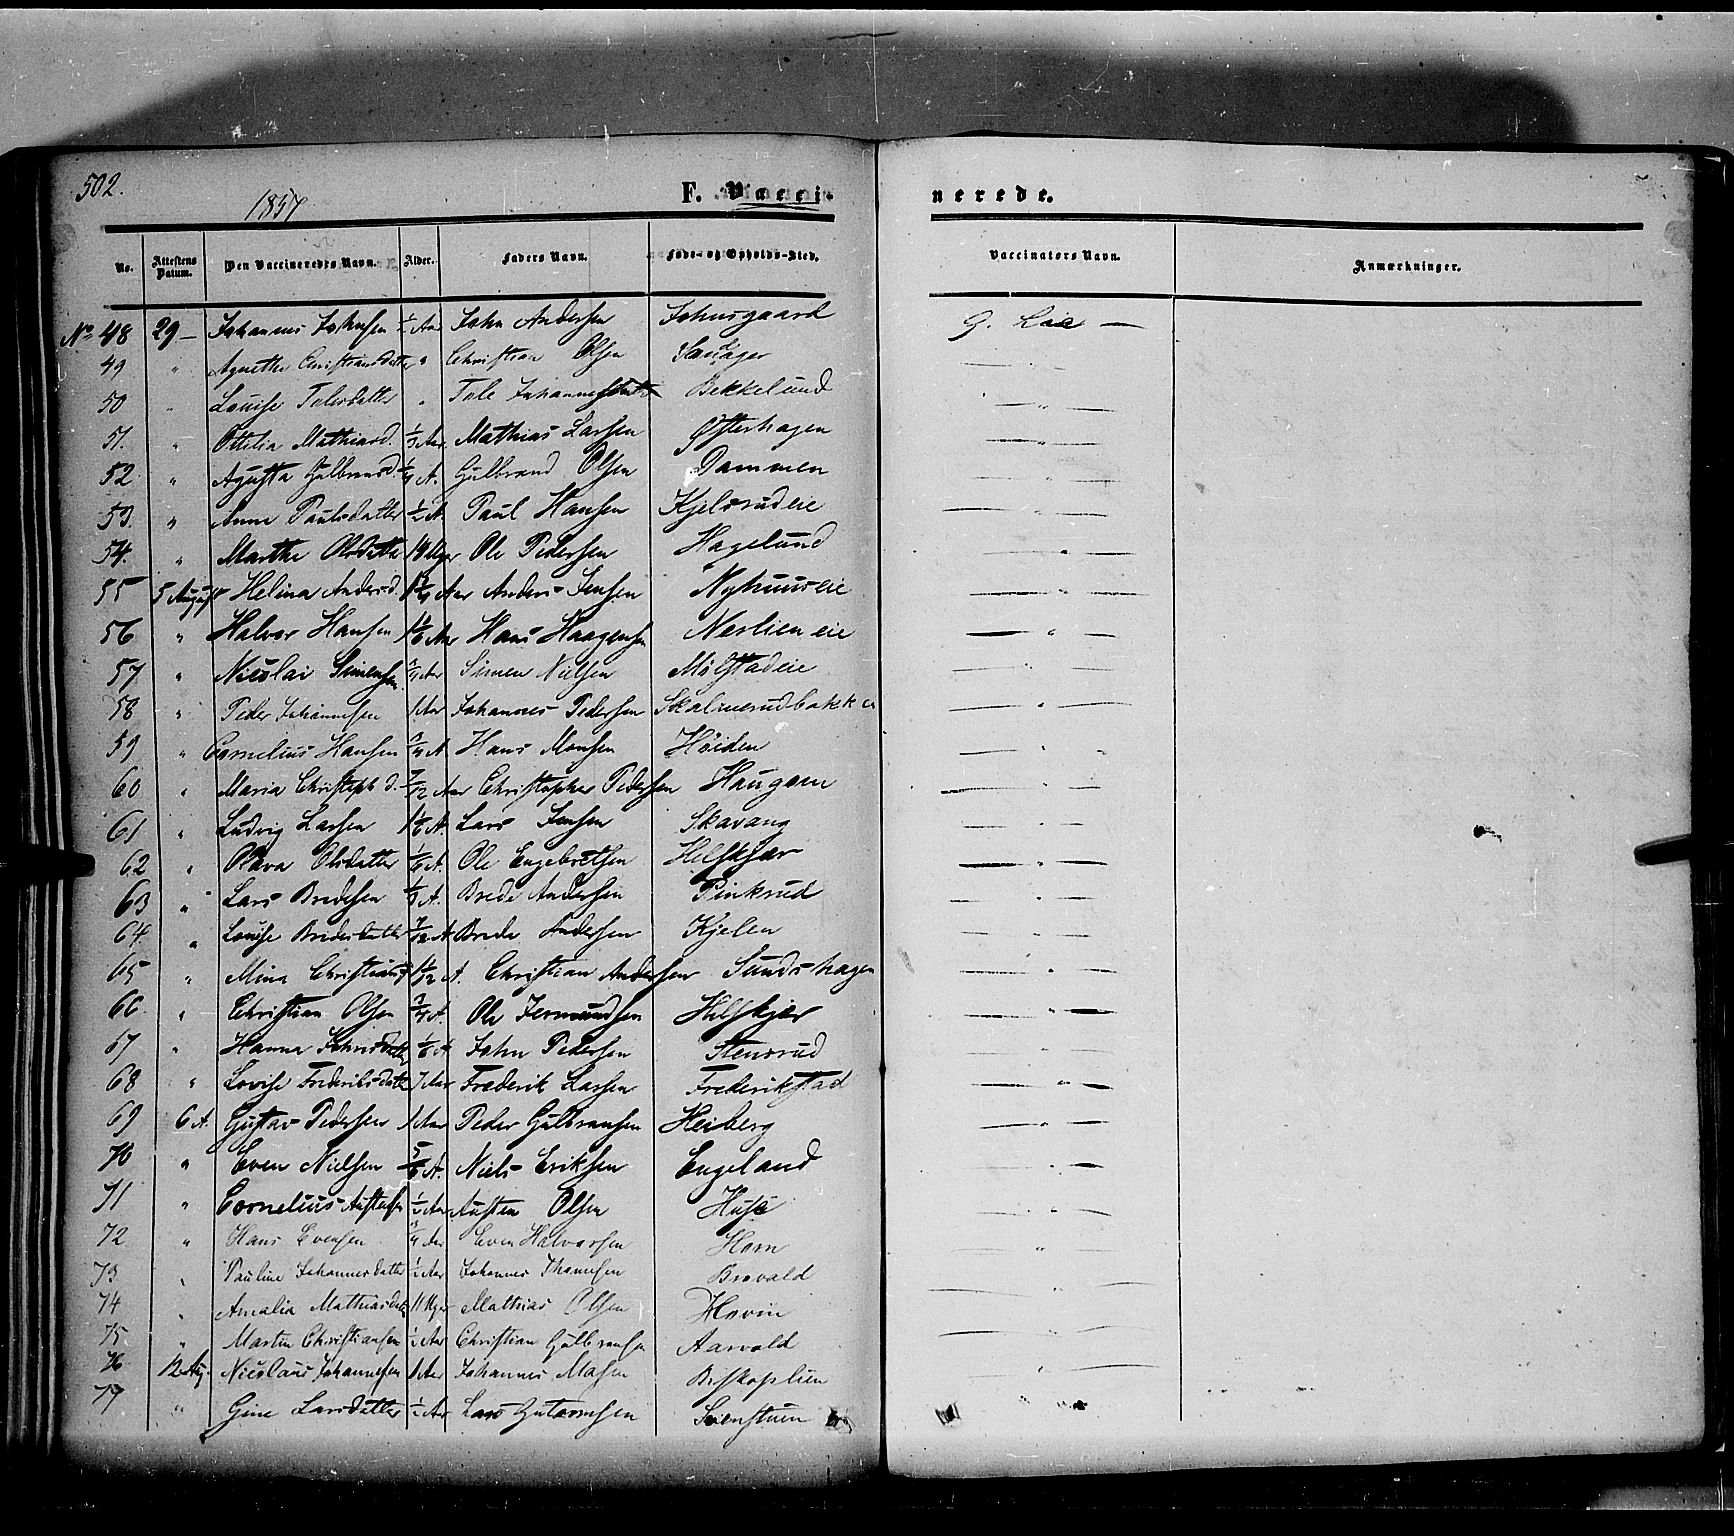 502.
1857
F. Vacci-
nerede.
No. Attestens Datum. Den Vaccineredes Navn. Alder. Faders Navn. Føde- og Opholds-Sted. Vaccinators Navn. Anmærkninger.
No 48 29 — Johannes Johnsen 1/2 Aar John Andersen Johnsgaard G. Lie —
49 " Agnethe Christiansdatter " Christian Olsen — " —
50 " Louise Tolesdatter " Tole Bekkelund — " —
51. " Ottilia Mathiasd. 1/3 Aar Mathias Larsen Østerhagen — " —
52 " Agusta Gulbrandsd. 1/4 A. Gulbrand Olsen Dammen — " —
53. " Anne Paulsdatter 1/2 A. Paul Hansen Kjelsrudeie — " —
54. " Marthe Olsdatter Uger Ole Pedersen Hagelund — " —
55 5 August Helina Andersd. Aar Anders Jensen Nyhuuseie — " —
56 " Halvor Hansen Aar Hans Haagensen Neslien eie — " —
57 " Nicolai Simensen 3/4 Aar Simen Nielsen Mølstadeie — " —
58 " Peder Johannesen 1 Aar Johannes Pedersen Skalmerudbakken — " —
59 " Cornelius Hansen 3/4 A. Hans Monsen Høiden — " —
60 " Maria Christoph d. 7/12 Aar Christopher Pedersen Haugom — " —
61 " Ludvig Larsen A. Lars Jensen Skavang — " —
62 " Olava Olsdatter 1/6 A. Ole Engebretsen Helskjær — " —
63 " Lars Bredesen 1/3 A. Brede Andersen Pinkrud — " —
64. " Louise Bredesdatter 7/12 A. Brede Andersen Kjelen — " —
65 " Mina Christiansd. A. Christian Andersen Sundshagen — " —
66. " Christian Olsen 3/4 A. Ole Jermundsen Helskjær — " —
67 " Hanna Johnsdatter 1/6 A John Pedersen Stensrud — " —
68 " Lovise Frederiksdatter 7 Aar Frederik Larsen Frederikstad — " —
69 6 A. Gustav Pedersen 1 Aar Peder Gulbransen Heiberg — " —
70 " Even Nielsen 5/6 A. Niels Eriksen Engeland — " —
71 " Cornelius Austensen 1/2 Aar Austen Olsen Huse — " —
72 " Hans Evensen 3/4 Aar Even Halvorsen Horn — " —
73 " Pauline Johannesdatter 1/2 Aar Johannes Thomesen Brovald
74 " Amalia Mathiasdatter 11 Uger Mathias Olsen Hovin — " —
75 " Martin Christiansen 1/2 Aar Christian Gulbransen Aarvold — " —
76 12 Aug. Nicolaus Johannesen 1 Aar Johannes Masen Biskoplien — " —
77 " Gine Larsdatter 1/2 Aar Lars Gutormsen "